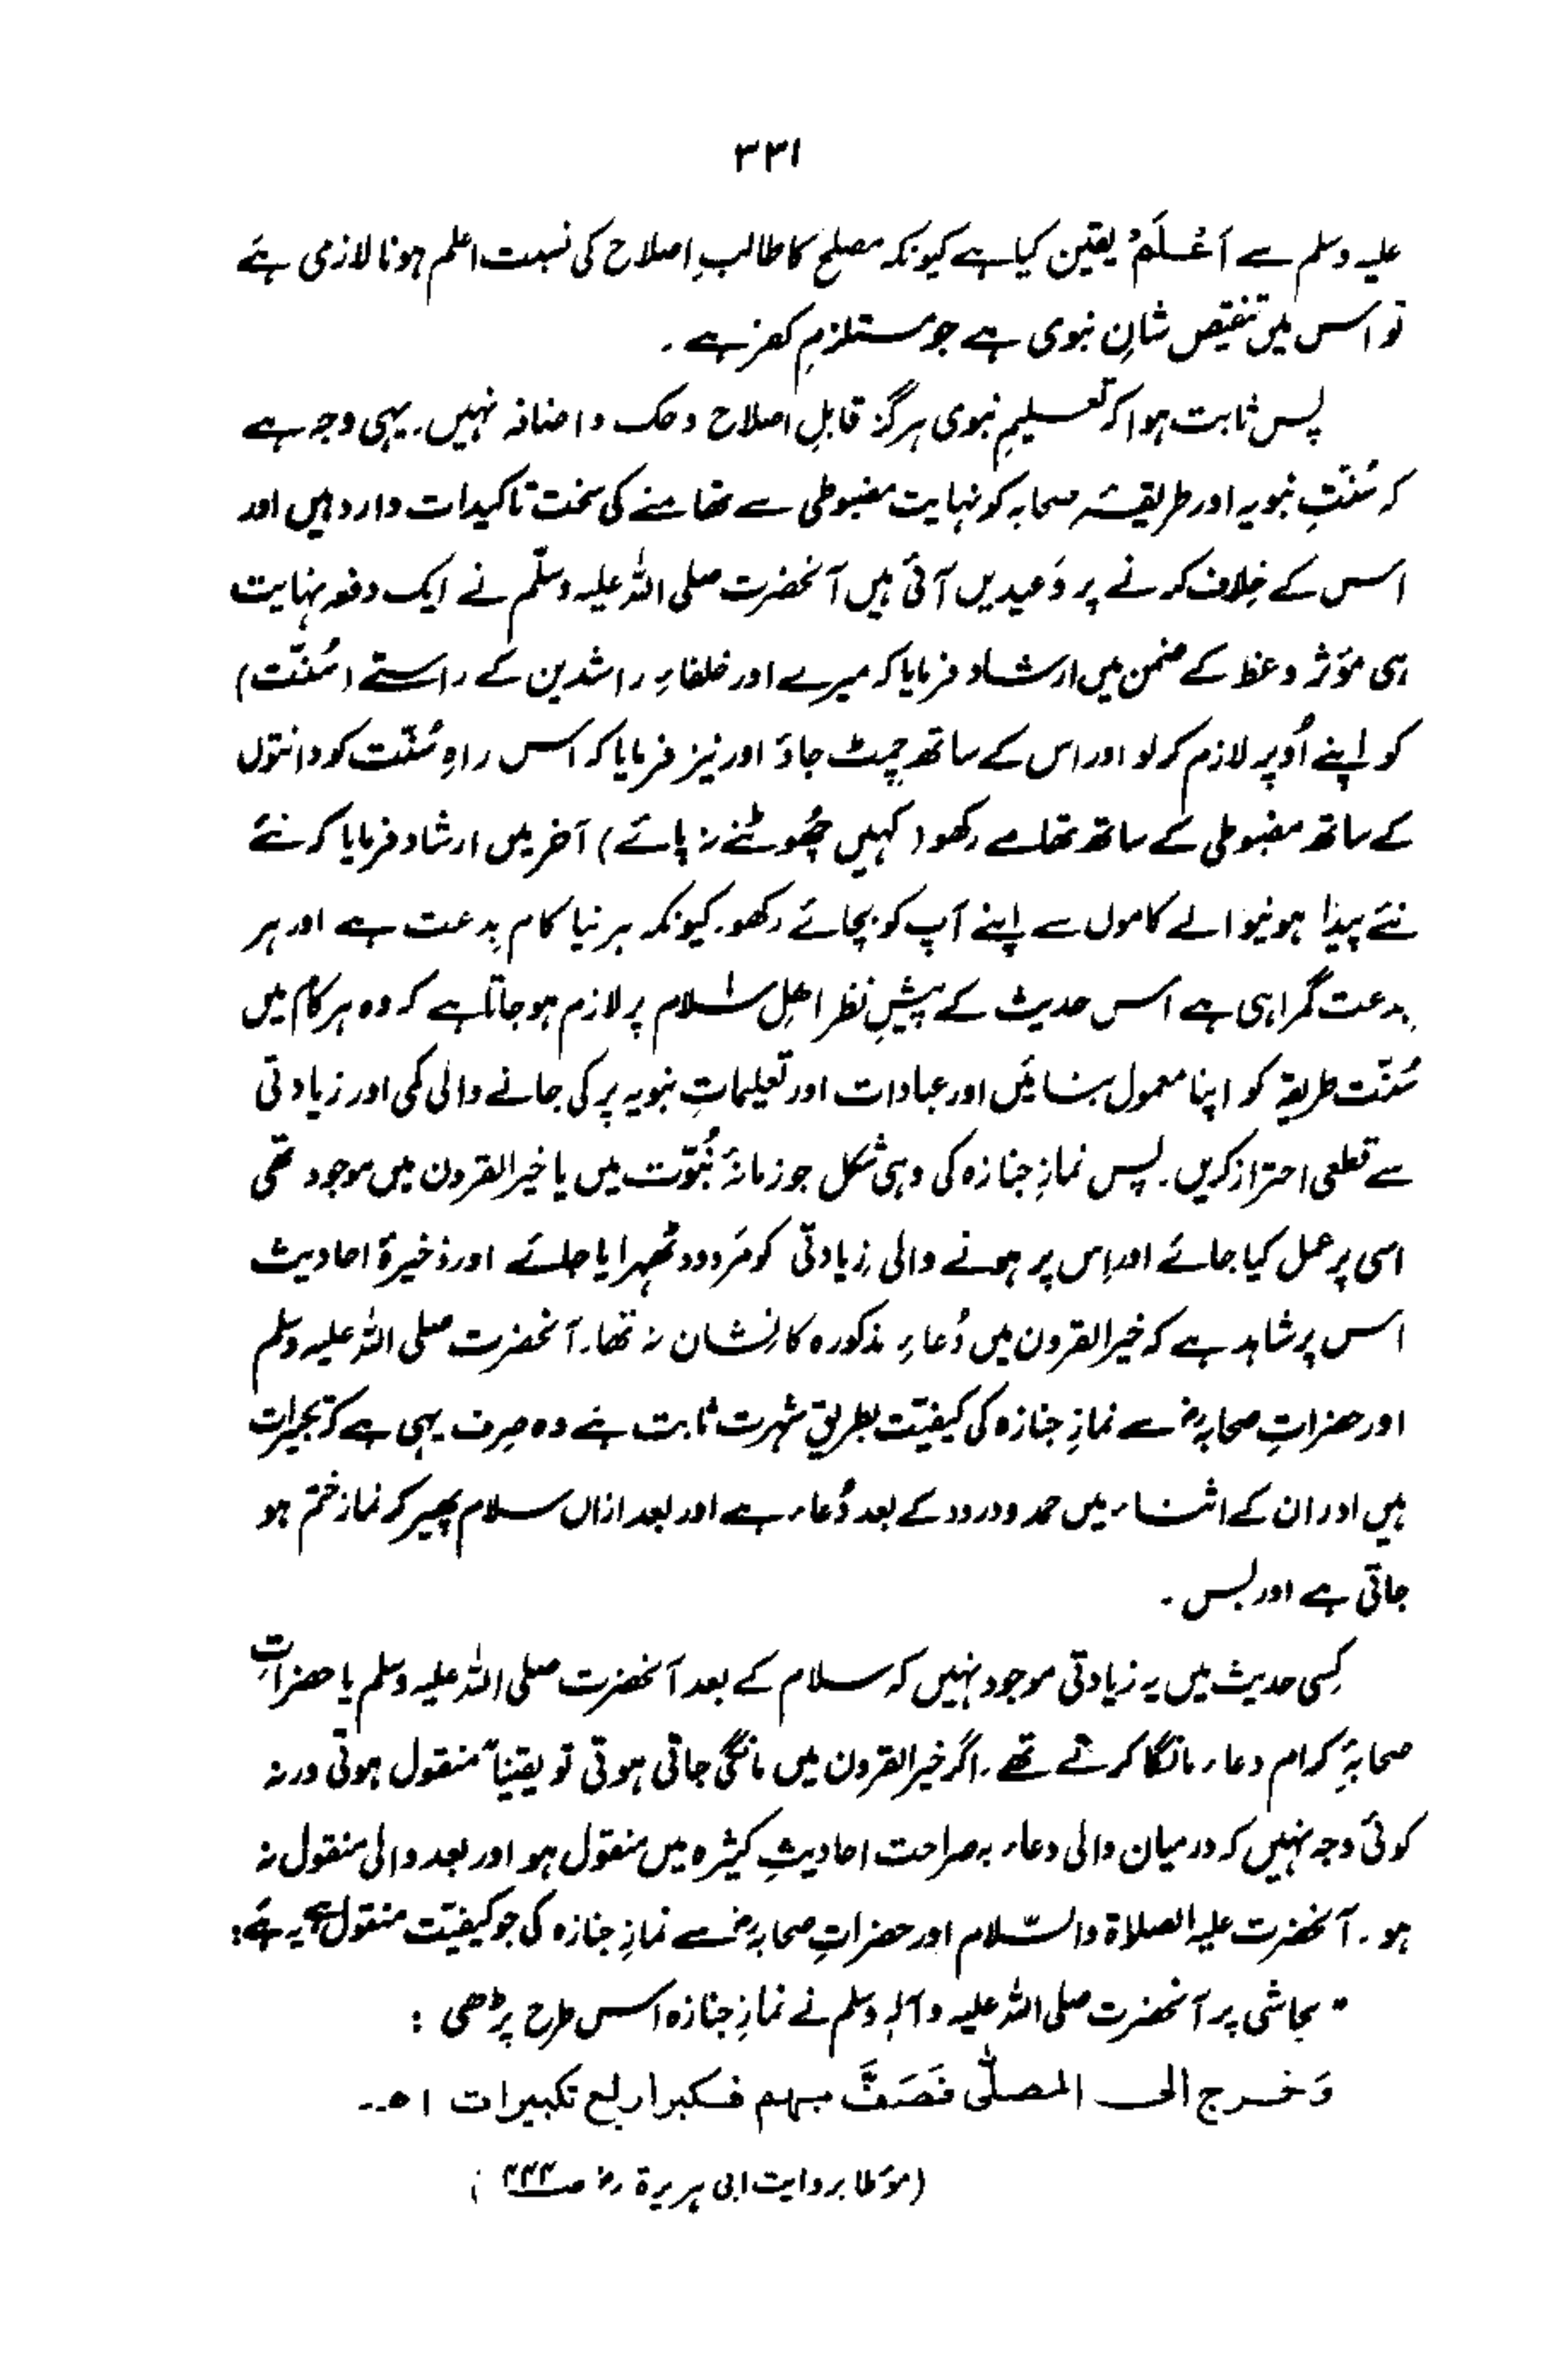 ۳۳۱
علیہ وسلم سے أَعْلَمُ یقین کیا ہے کیونکہ مصلح کا طالبِ اصلاح کی نسبت اعلم ہونا لازمی ہے
تو اس میں تنقیص شانِ نبوی ہے جو مستلزمِ کفر ہے ۔
پس ثابت ہوا کہ تعلیمِ نبوی ہرگز قابلِ اصلاح و حک و اضافہ نہیں۔ یہی وجہ ہے
کہ سُنّتِ نبویہ اور طریقۂ صحابہ کو نہایت مضبوطی سے تھامنے کی سخت تاکیدات وارد ہیں اور
اس کے خِلاف کرنے پر وَعیدیں آئی ہیں آنحضرت صلی اللہ علیہ وسلّم نے ایک دفعہ نہایت
ہی مؤثر وعظ کے ضمن میں ارشاد فرمایا کہ میرے اور خلفاءِ راشدین کے راستے (سُنّت)
کو اپنے اُوپر لازم کر لو اور اس کے ساتھ چمٹ جاؤ اور نیز فرمایا کہ اس راہِ سُنّت کو دانتوں
کے ساتھ مضبوطی کے ساتھ تھامے رکھو (کہیں چھُوٹنے نہ پائے) آخر میں ارشاد فرمایا کہ نئے
نئے پیدا ہونیوالے کاموں سے اپنے آپ کو بچائے رکھو۔ کیونکہ ہر نیا کام بِدعت ہے اور ہر
بدعت گمراہی ہے اس حدیث کے پیشِ نظر اہلِ اسلام پر لازم ہو جاتا ہے کہ وہ ہر کام میں
سُنّت طریقہ کو اپنا معمول بنائیں اور عبادات اور تعلیماتِ نبویہ پر کی جانے والی کمی اور زیادتی
سے قطعی احتراز کریں۔ پس نمازِ جنازہ کی وہی شکل جو زمانۂ نُبوّت میں یا خیر القرون میں موجود تھی
اسی پر عمل کیا جائے اور اِس پر ہونے والی زیادتی کو مَردود ٹھہرایا جائے اور ذخیرۂ احادیث
اس پر شاہد ہے کہ خیر القرون میں دُعاءِ مذکورہ کا نِشان نہ تھا۔ آنحضرت صلی اللہ علیہ وسلم
اور حضراتِ صحابہؓ سے نمازِ جنازہ کی کیفیّت بطریقِ شہرت ثابت ہے وہ صِرف یہی ہے کہ تکبیرات
ہیں اور ان کے اثناء میں حمد و درود کے بعد دُعاء ہے اور بعد ازاں سلام پھیر کر نماز ختم ہو
جاتی ہے اور بس ۔
کِسی حدیث میں یہ زیادتی موجود نہیں کہ سلام کے بعد آنحضرت صلی اللہ علیہ وسلم یا حضراتِ
صحابۂِ کرام دعاء مانگا کرتے تھے ۔ اگر خیر القرون میں مانگی جاتی ہوتی تو یقیناً منقول ہوتی ورنہ
کوئی وجہ نہیں کہ درمیان والی دعاء بہ صراحت احادیثِ کثیرہ میں منقول ہو اور بعد والی منقول نہ
ہو ۔ آنحضرت علیہ الصلاۃ والسّلام اور حضراتِ صحابہؓ سے نمازِ جنازہ کی جو کیفیّت منقول ہے یہ ہے:
" نجاشی پر آنحضرت صلی اللہ علیہ وآلہٖ وسلم نے نمازِ جنازہ اس طرح پڑھی :
وَخرج الی المصلّٰی فَصَفَّ بہم فکبر اربع تکبیرات اھ۔۔
(مؤطا بروایت ابی ہریرۃ رض